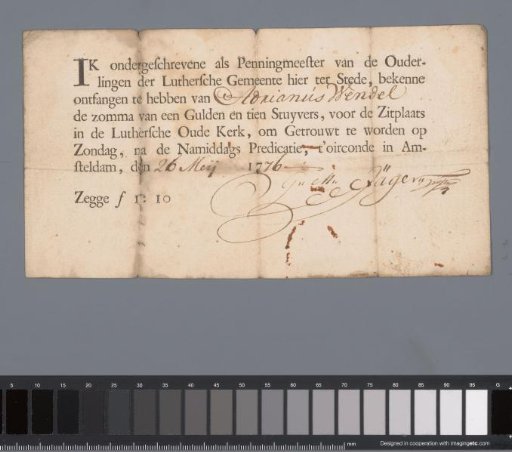 IK ondergeschrevene als Penningmeester van de Ouder-
lingen der Luthersche Gemeente hier ter Stede, bekenne
ontfangen te hebben van Adrianus Wendel
de zomma van een Gulden en tien Stuyvers, voor de Zitplaats
in de Luthersche Oude Kerk, om Getrouwt te worden op
Zondag, na de Namiddags Predicatie, t'oirconde in Am-
steldam, den 26 Meij 1776
Zegge f 1: 10
5 10 15 20 25 30 35 40 45 50 55 60 65 70 75 80 85 90 95 G
mm
Designed in cooperation with imagingetc.com